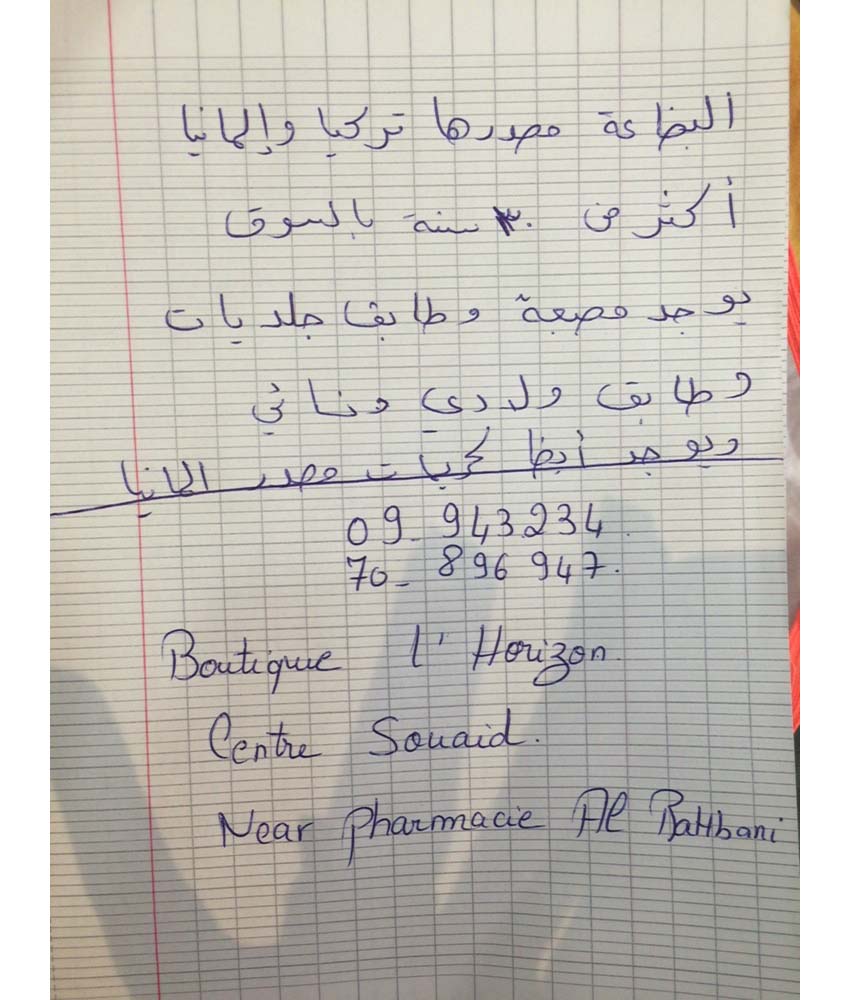 البظاعة مصدرها تركيا وإلمانيا
أكثر من ٣٠ سنة بالسوق
يوجد مصبغة وطابق جلديات
وطابق ولادي ونسائي
ويوجد أيظا كريات مصدر المانيا
09_ 943234.
70_ 896 947.
Boutique l'Horizon.
Centre Souaid.
Near Pharmacie Al Rahbani